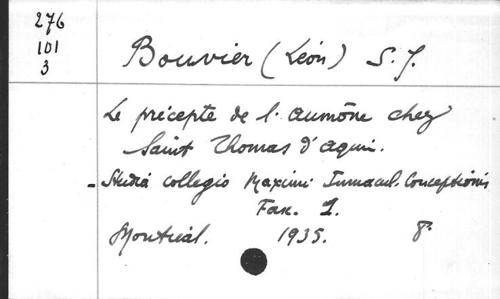 276
101
3
Bouvier (Léon) S. J.
Le précepte de l'aumône chez
Saint Thomas d'Aquin.
- Studia collegio Maximi Immacul. Conceptionis
Fax. 1.
Montréal. 1935. 8°